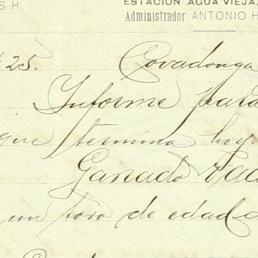 S H
ESTACIÓN AGUA VIEJA,
Administrador ANTONIO H
25. Covadonga
Informe para
que termina hoy.
Ganado Vac
un toro de edad